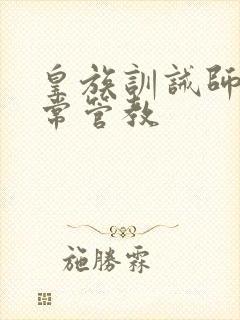 皇族訓誡師日
常管教
施勝霖